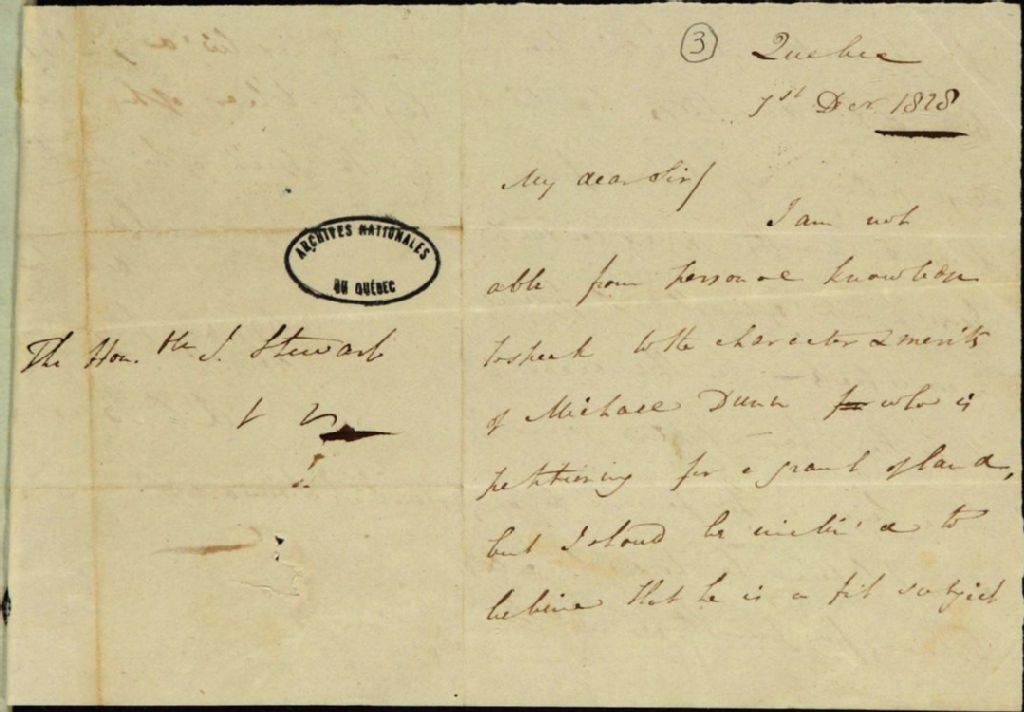 3
Quebec
1st Decr. 1828
My dear Sir/
I am not
able from personal knowledge
to speak to the character & merits
of Michael Dunn who is
petitioning for a grant of land,
but I shoud be inclin'd to
believe that he is a fit subject
ARCHIVES NATIONALES
DU QUÉBEC
The Hon. J. Stewart